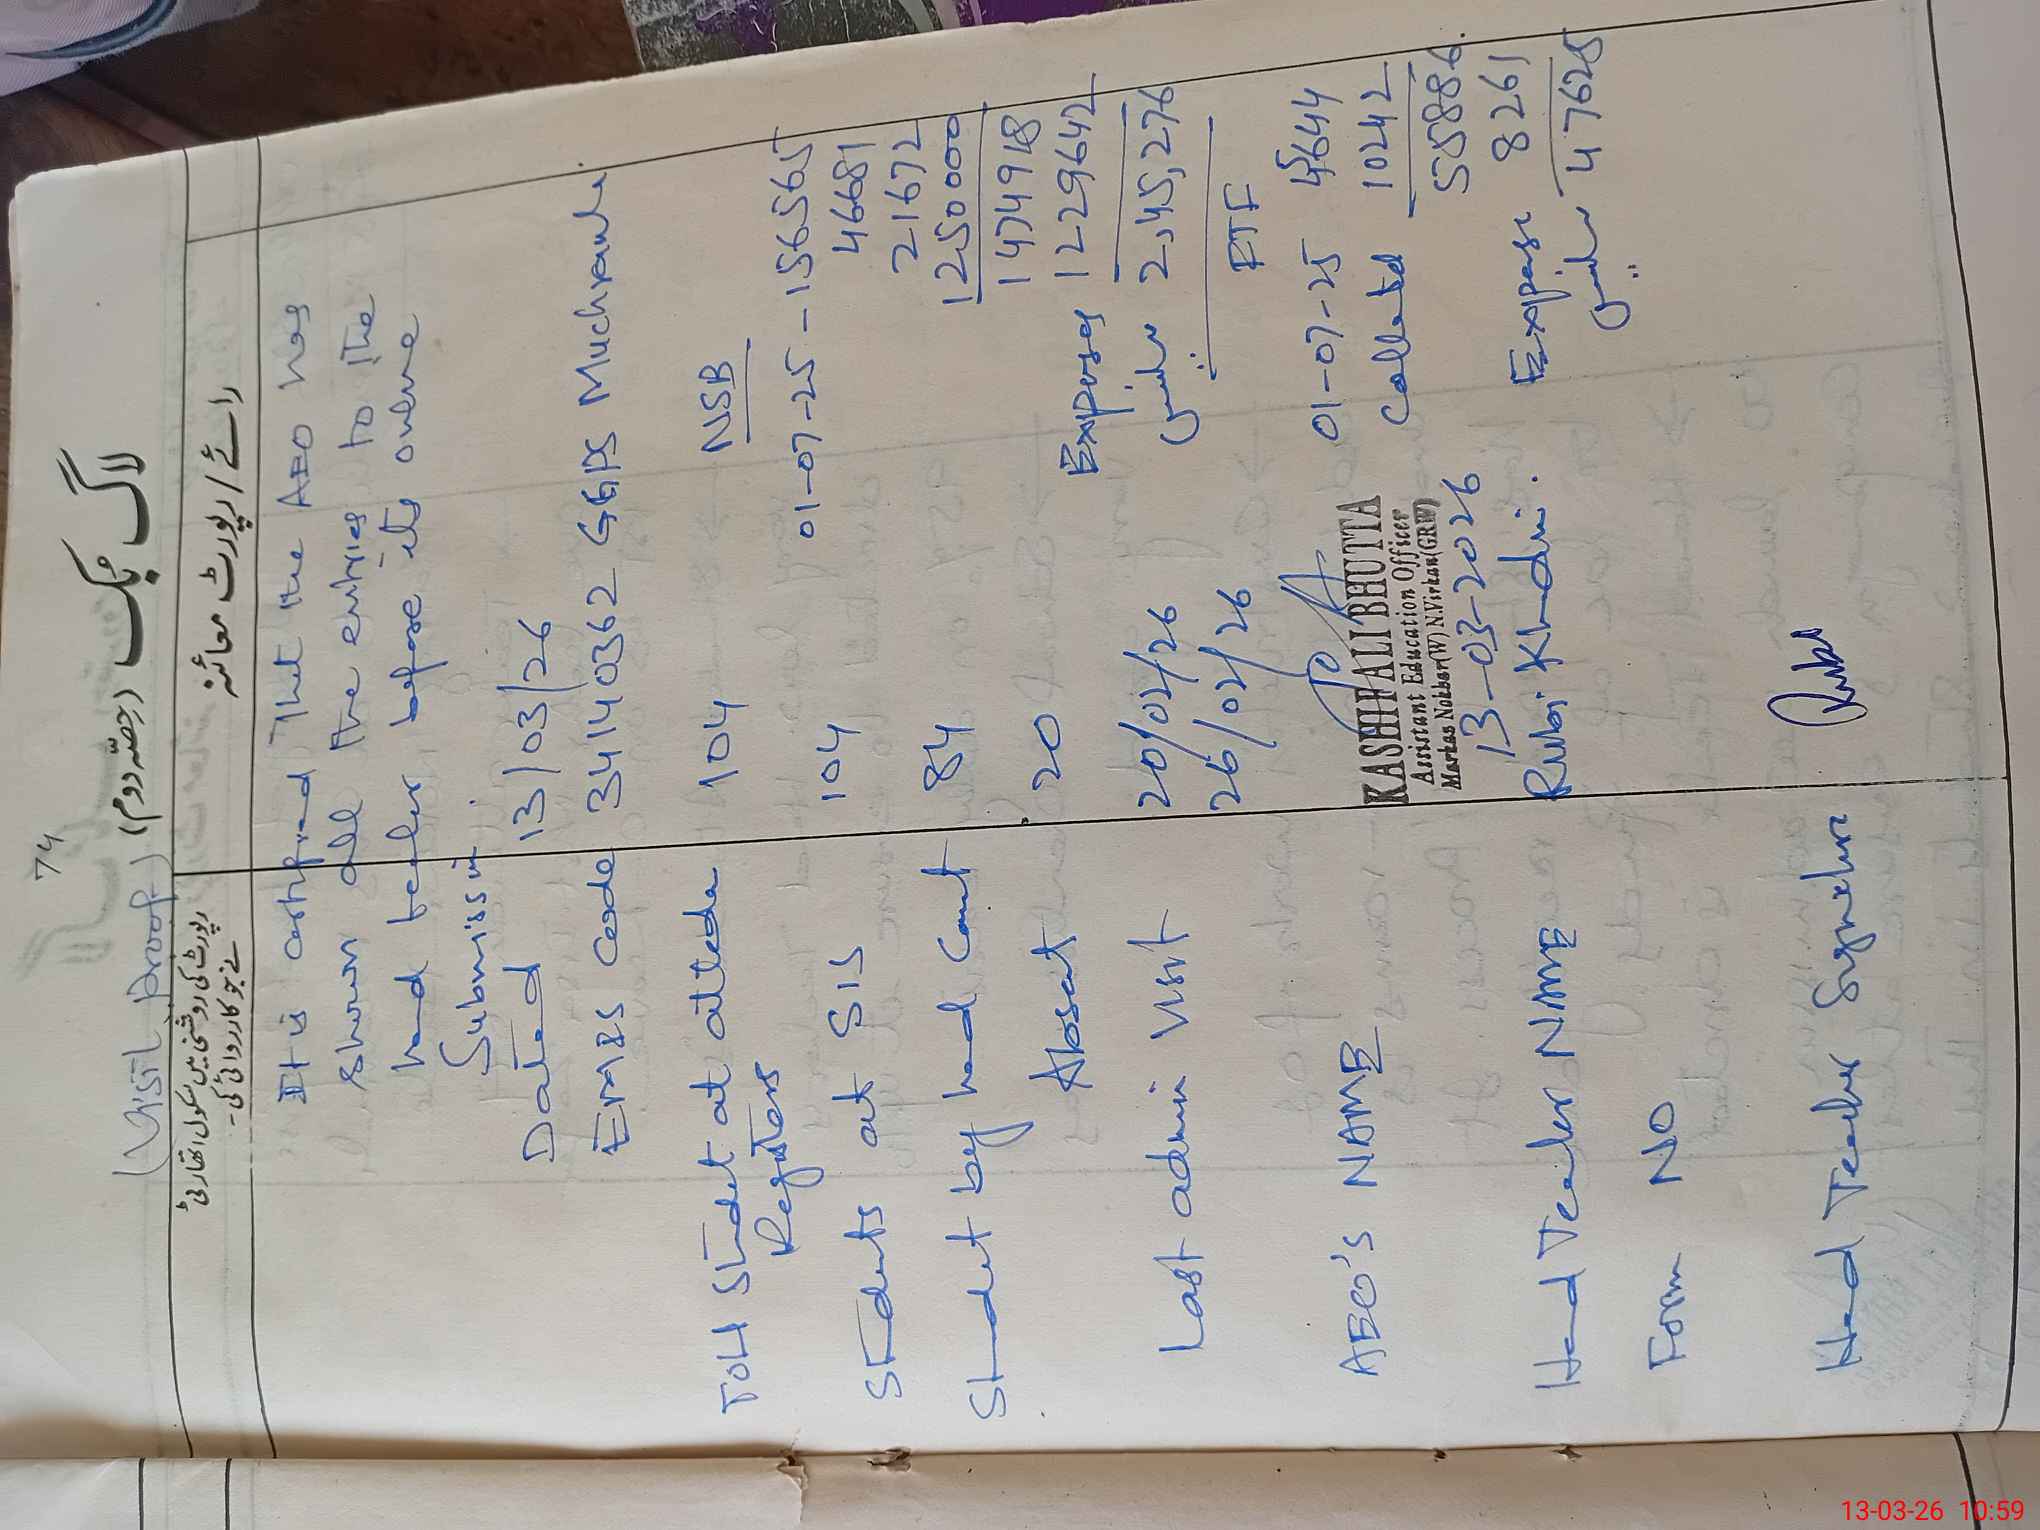 74
لاگ بک (حصّہ دوم)
(Visit proof)
رائے / رپورٹ معائنہ
رپورٹ کی روشنی میں سکول اتھارٹی
نے جو کارروائی کی۔
It is certified that the AEO has
shown all the entries to the
head teacher before its online
Submission.
Dated 13/03/26
EMIS Code 34140362 GGPS Muchrawla
Totl Studet at attedce 104
Registers
Students at SIS 104
Studet by head Count 84
Absent 20
Last admin visit 20/02/26
26/02/26
AEO's NAME
KASHIF ALI BHUTTA
Assistant Education Officer
Markaz Nokhar(W) N.Virkan(GRW)
13-03-2026
Head Teacher NAME Rubi Khadim.
Form NO
Head Teacher Signature
NSB
01-07-25 - 156565
46681
21672
1250000
1474918
Expenses 1229642
بقیہ 2,45,276
FTF
01-07-25 45644
Collected 10242
55886
Expense 8261
بقیہ 47625
13-03-26 10:59